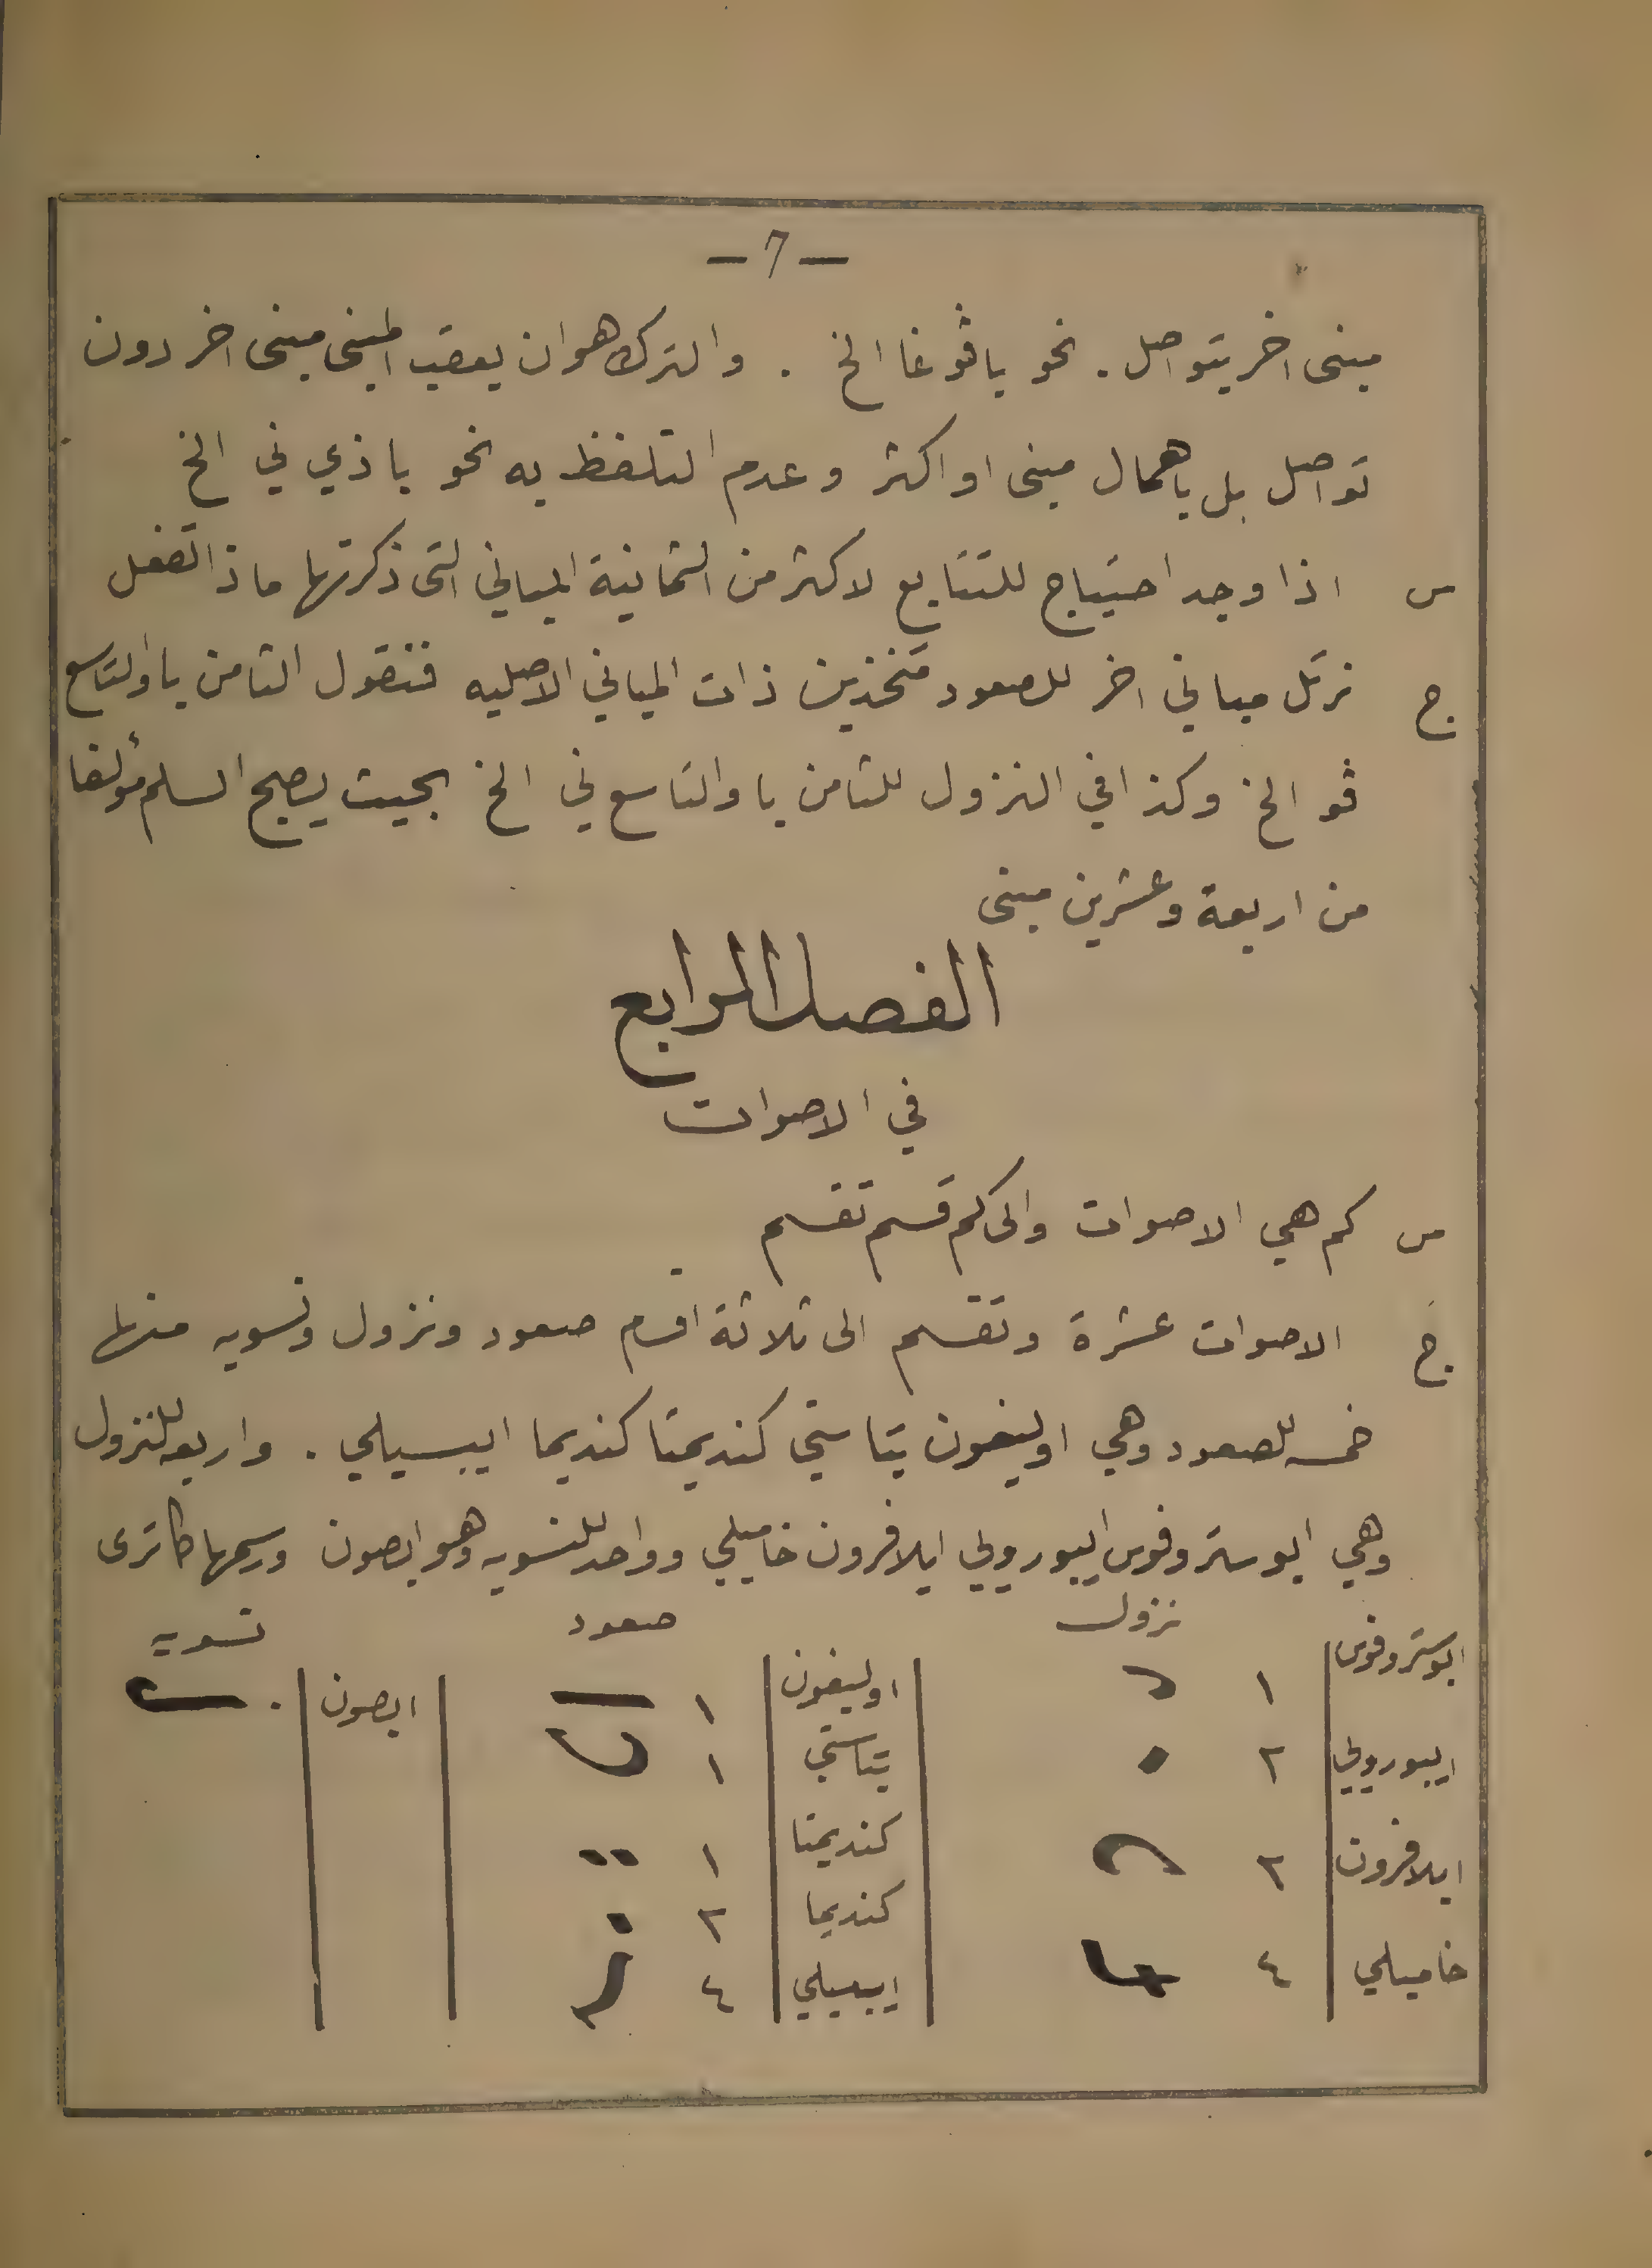 – 7 –
مبنى اخر يتواصل . نحو با ڤو غا الخ . والترك هو ان يعقب المبنى مبنى اخر دون
تواصل بل باهمال مبنى او اكثر وعدم التلفظ به نحو با ذي ني الخ
س اذا وجد احتياج للتتابع لاكثر من الثمانية المباني التى ذكرتها ماذا تفعل
ج نرتل مباني اخر للصعود متخذين ذات المباني الاصليه فنقول الثامن با والتاسع
ڤو الخ وكذا في النزول للثامن با والتاسع ني الخ بحيث يصبح السلم مؤلفا
من اربعة وعشرين مبنى
الفصل الرابع
في الاصوات
س كم هي الاصوات والى كم قسم تقسم
ج الاصوات عشرة وتقسم الى ثلاثة اقسام صعود ونزول وتسويه منها
خمسه للصعود وهي اوليغون بتاستي كنديمتا كنديما ايبسيلي . واربعه للنزول
وهي ابوستروفوس ايبورويي ايلافرون خاميلي وواحد للتسويه وهو ايصون ورسمها كما ترى
نزول صعود تسويه
ابوستروفوس ١ اوليغون ١ ايصون .
ايبورويي ٢ بتاستي ١
ايلافرون ٢ كنديمتا ١
كنديما ٢
خاميلي ٤ ايبسيلي ٤